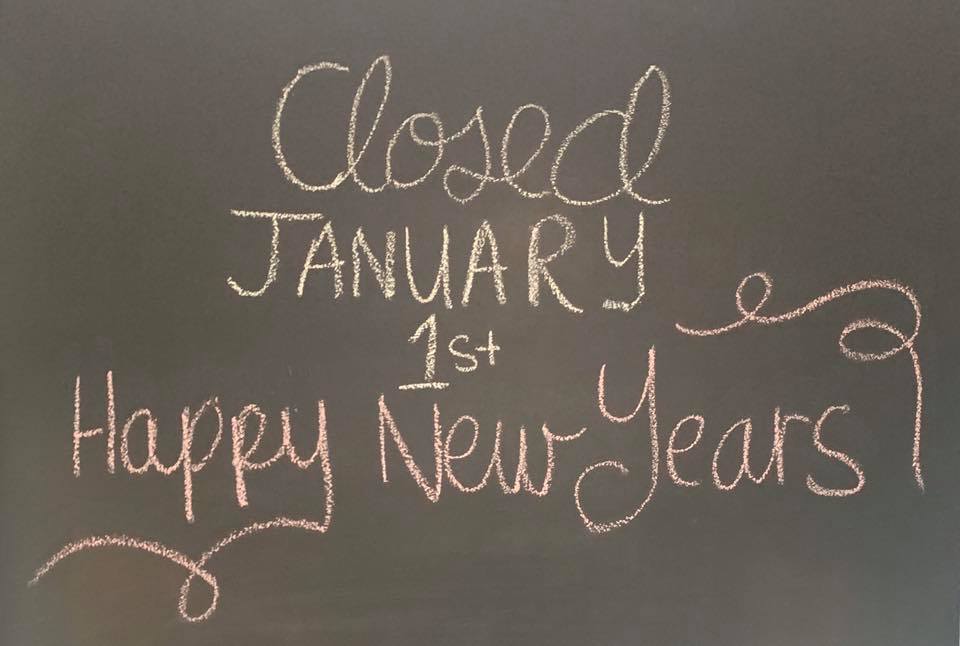 Closed
JANUARY
1st
Happy New Years